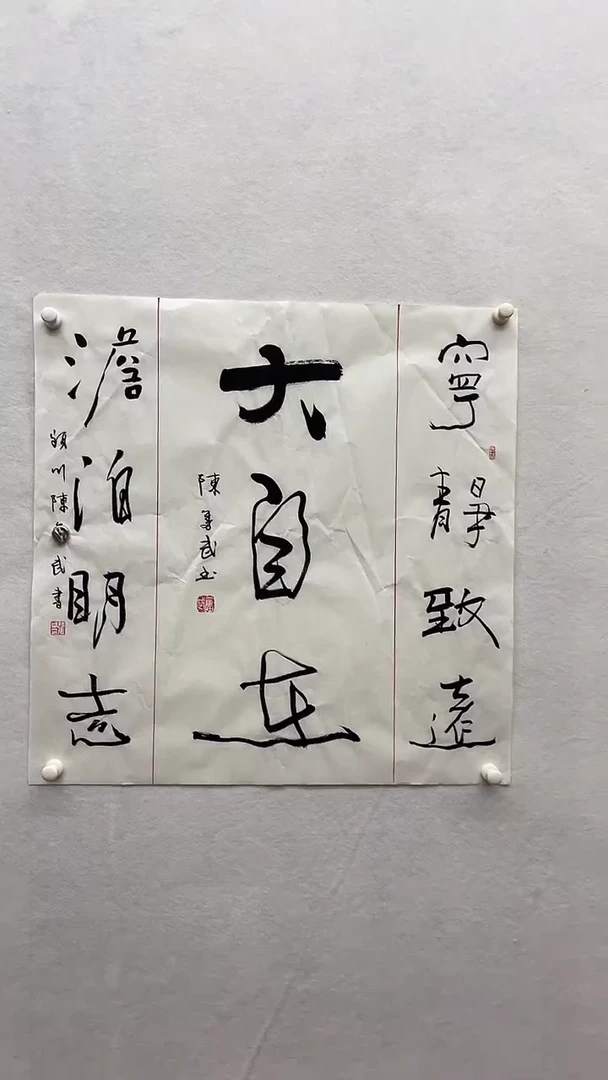 寧靜致遠
大自在
陳武书
澹泊明志
潁川陳武書